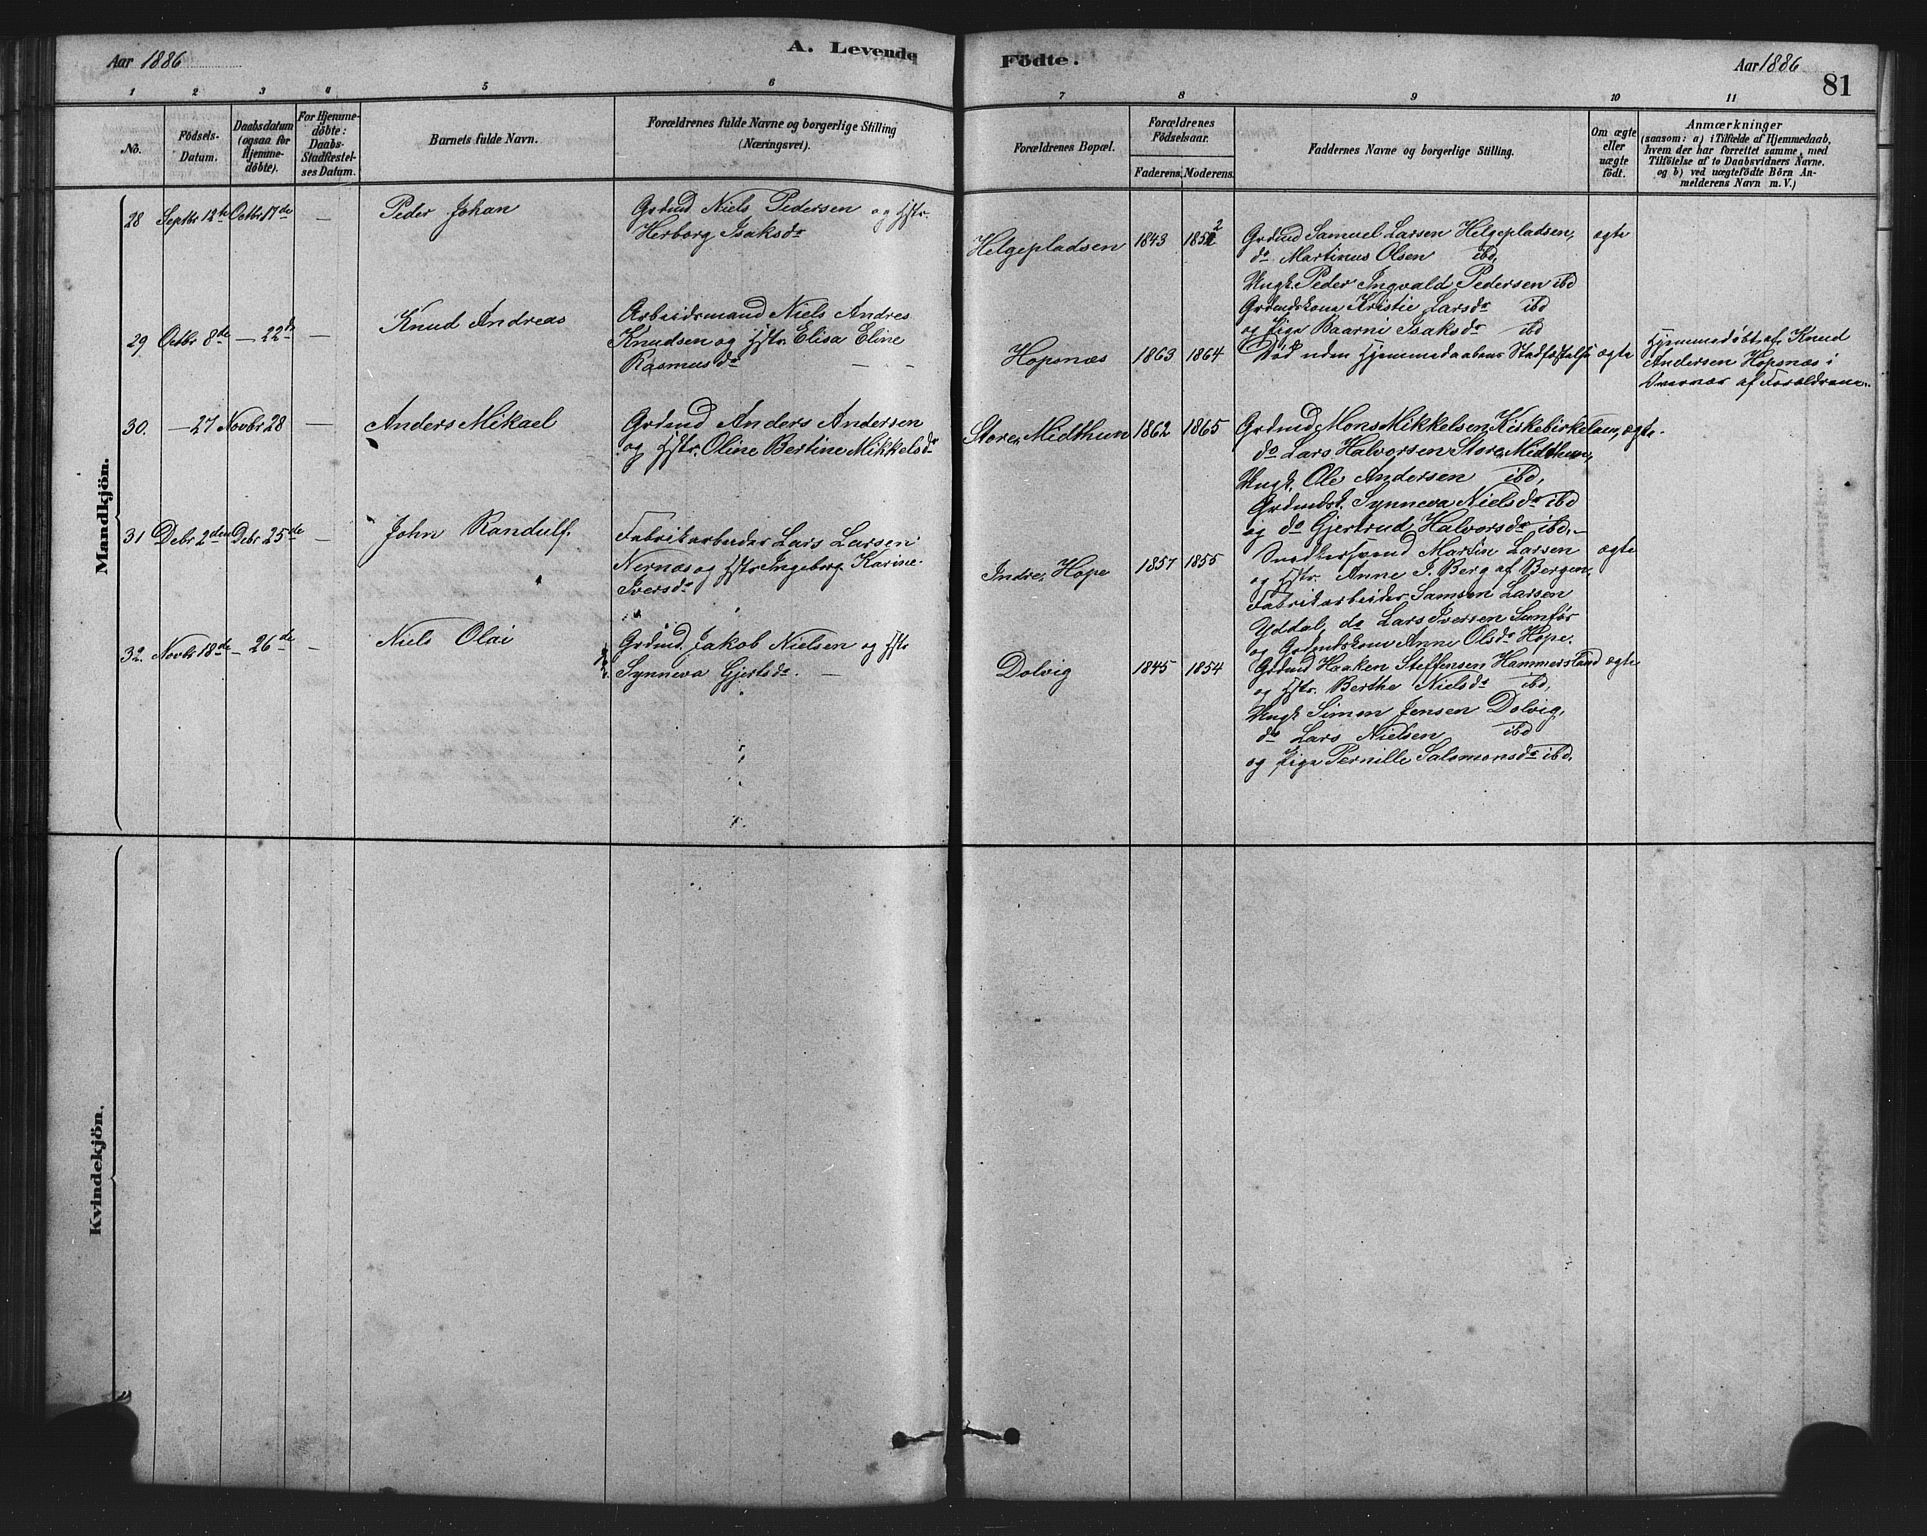 Aar 1886
A. Levende
Födte.
Aar 1886
81
1 2 3 4 5 6 7 8 9 10 11
No.
Födsels-
Datum.
Daabsdatum
(ogsaa for
Hjemme-
döbte).
For Hjemme-
döbte:
Daabs-
Stadfæstel-
ses Datum.
Barnets fulde Navn.
Forældrenes fulde Navne og borgerlige Stilling
(Næringsvei).
Forældrenes Bopæl.
Forældrenes
Födselsaar.
Faderens. Moderens.
Faddernes Navne og borgerlige Stilling.
Om ægte
eller
uægte
födt.
Anmærkninger
(saasom: a) i Tilfælde af Hjemmedaab,
hvem der har forrettet samme, med
Tilföielse af to Daabsvidners Navne.
og b) ved uægtefödte Börn An-
melderens Navn m. V.)
Mandkjön.
28 Septbr 12te Octbr 17de — Peder Johan
Grdmd Niels Pedersen og Hstr.
Herborg Isaksdr
Helgepladsen 1843 1852
Grdmd Samuel Larsen Helgepladsen,
do Martinus Olsen ibd,
Ungk. Peder Ingvald Pedersen ibd
Grdmdskone Kristie Larsdr ibd
og Pige Baarni Isaksdr ibd
ægte
29. Octbr 8de — 22de — Knud Andreas
Arbeidsmand Niels Andres
Knudsen og Hstr. Elisa Eline
Rasmusdr
Hopsnæs 1863 1864
Död uden Hjemmedaabens Stadfæstelse
ægte
Hjemmedøbt af Knud
Andersen Hopsnæs i
Nærvær af Forældrene.
30. — 27 Novbr 28 — Anders Mikael
Grdmd Anders Andersen
og Hstr. Oline Bertine Mikkelsdr
Store Midthun 1862 1865
Grdmd Mons Mikkelsen Kirkebirkeland,
do Lars Halvorsen Store Midthun,
Ungk. Ole Andersen ibd,
Grdmdsk. Synneva Nielsdr ibd
og do Gjertrud Halvorsdr ibd.—
ægte.
31 Debr 2den Debr 25de — John Randulf
Fabrikarbeider Lars Larsen
Nernæs og Hstr Ingeborg Karine
Iversdr
Indre Hope 1857 1855
Snedkersvend Martin Larsen
og Hstr. Anne J. Berg af Bergen,
Fabrikarbeider Samson Larsen
Yddal, do Lars Iversen Sunför
og Grdmdskone Anne Olsdr Hope.
ægte
32. Novbr 18de — 26de — Niels Olai
Grdmd. Jakob Nielsen og Hstr
Synneva Gjertsdr. —
Dolvig 1845 1854
Grdmd Haaken Steffensen Hammersland
og Hstr. Berthe Nielsdr ibd,
Ungk Simon Jensen Dolvig,
do Lars Nielsen ibd
og Pige Pernille Salomonsdr ibd.
ægte
Kvindekjön.